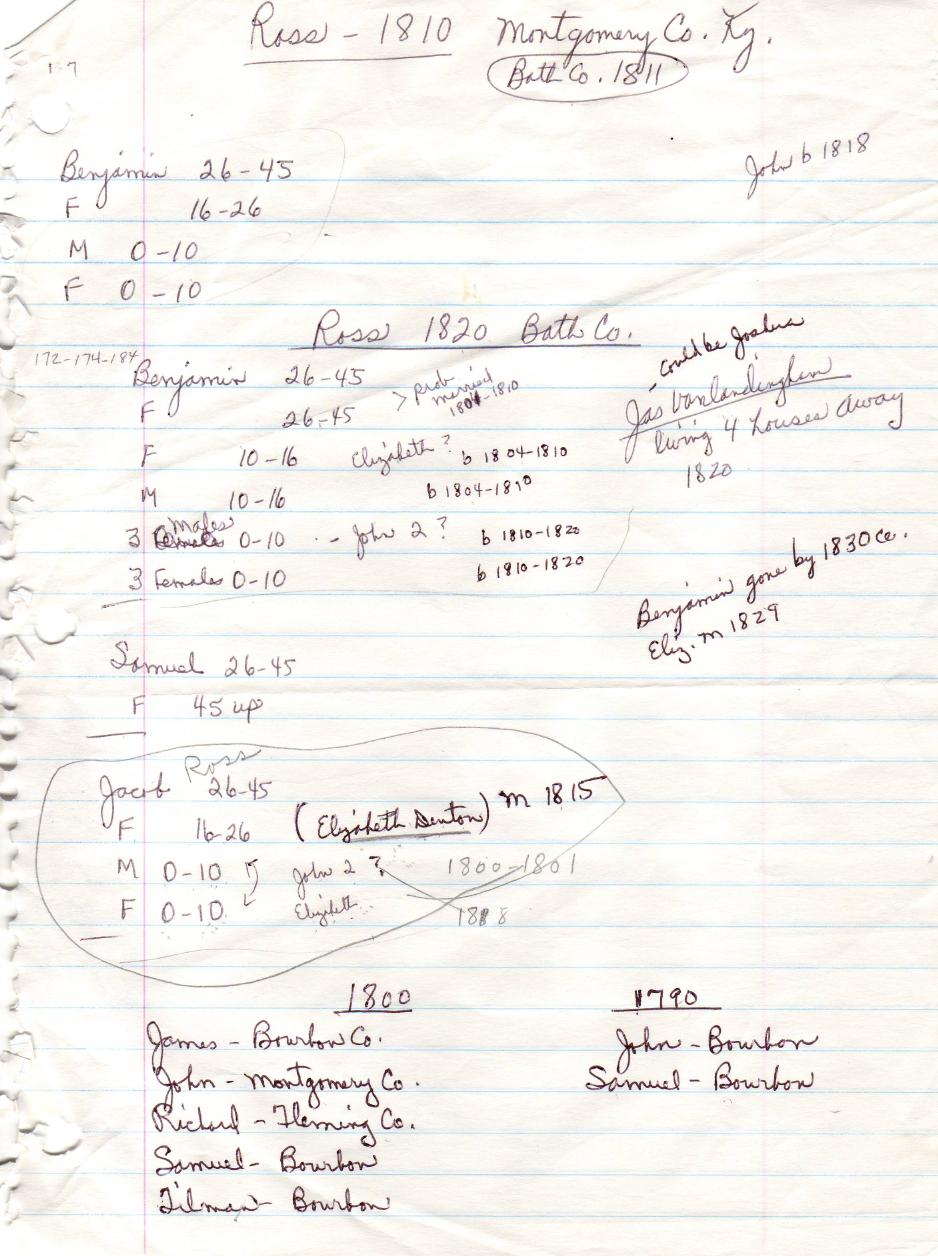 Ross - 1810 Montgomery Co. Ky.
Bath Co. 1811
1-7
John b 1818
Benjamin 26-45
F 16-26
M 0-10
F 0-10
Ross 1820 Bath Co.
172-174-184
Benjamin 26-45
F 26-45
> prob married 1804-1810
F 10-16 Elizabeth? b 1804-1810
M 10-16 b 1804-1810
3 Males 0-10 - - John 2? b 1810-1820
3 Females 0-10 b 1810-1820
- could be Joshua
Jas Vanlandingham
living 4 houses away
1820
Benjamin gone by 1830 ce.
Eliz. m 1829
Samuel 26-45
F 45 up
Jacob Ross 26-45
F 16-26 (Elizabeth Denton) m 1815
M 0-10 John 2? 1800-1801
F 0-10 Elizabeth 1818
1800
James - Bourbon Co.
John - Montgomery Co.
Richard - Fleming Co.
Samuel - Bourbon
Tilman - Bourbon
1790
John - Bourbon
Samuel - Bourbon